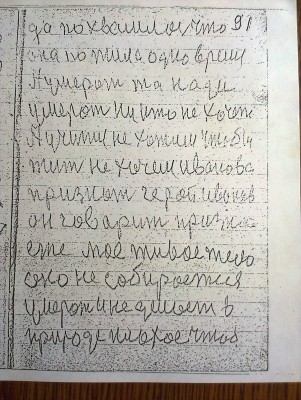 да похвалилос что 91
она пожила одно время
И умерат та нади
умерат ни што не хочет
И учитиц не хотим чтобы
тит не хочем иванова
признат герой иванов
он говарит призна
ете мое живое тело
оно не собирается
умерат и не делает в
природе плохое чтоб